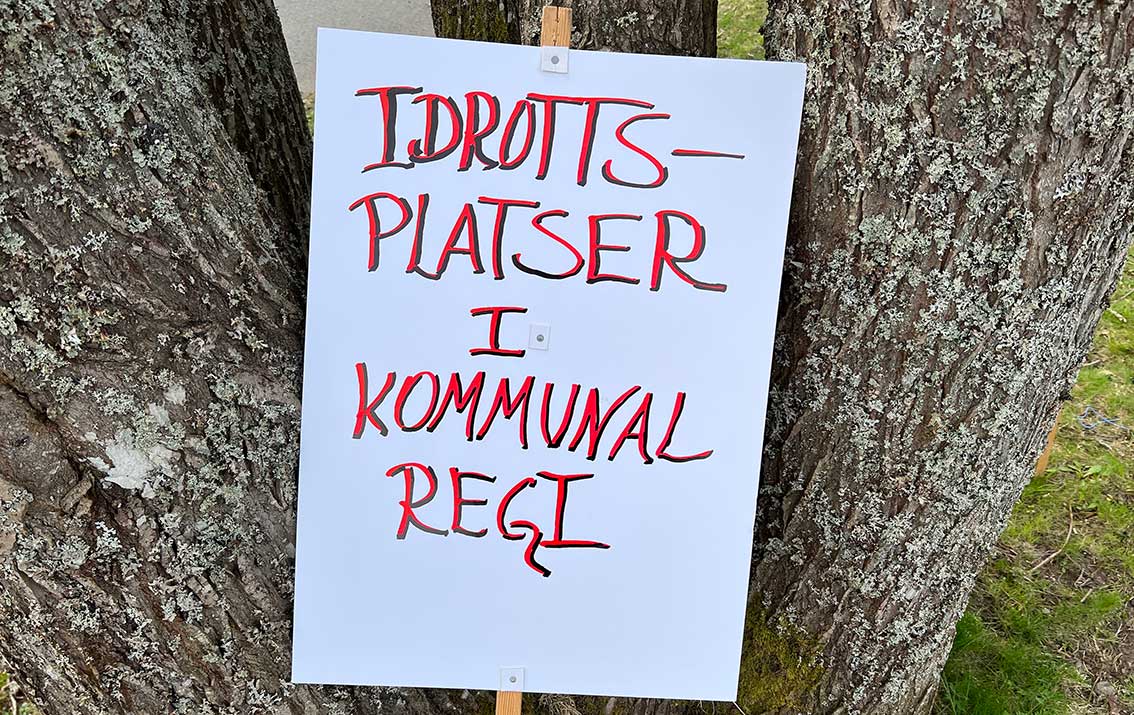 IDROTTS-
PLATSER
I
KOMMUNAL
REGI